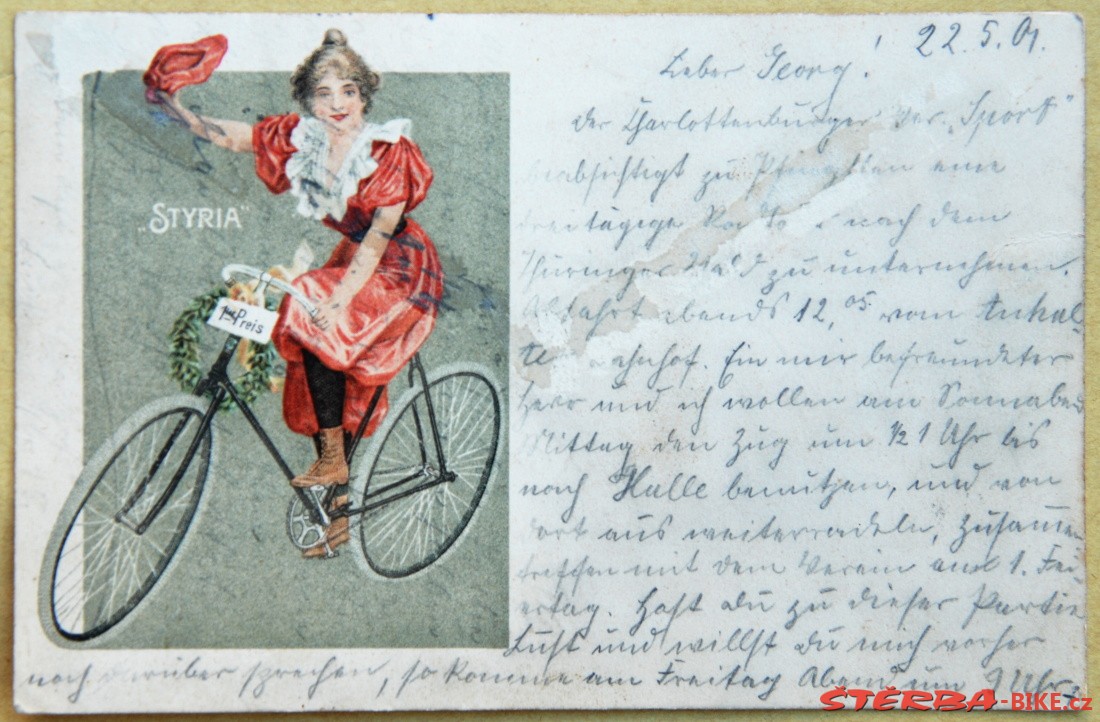 22.5.01.
Lieber Georg!
der Charlottenburger Ver. „Sport"
beabsichtigt zu Pfingsten eine
dreitägige nach dem
Thüringer Wald zu unternehmen.
Abfahrt abends 12,05 vom Anhal-
te Bahnhof. Ein mir befreundeter
Herr und ich wollen am Sonnabend
Mittag den Zug um ½ 1 Uhr bis
nach Halle benutzen, und von
dort aus weiterradeln, Zusammen
treffen mit dem Verein am 1. Fei-
ertag. Hast du zu dieser Partie
Lust und willst du mich vorher
noch darüber sprechen, so komme am Freitag Abend um 9 Uhr
„STYRIA"
1ter Preis
ŠTĚRBA-BIKE.cz